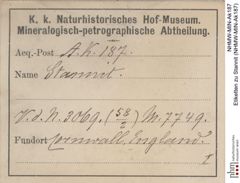 K. k. Naturhistorisches Hof-Museum.
Mineralogisch-petrographische Abtheilung.
Acq.-Post A.K. 187.
Name Stannit.
V.d.N. 3069. (58/2) N. 7749.
Fundort Cornwall, England.
I
NHMW-MIN-Ak187
Etiketten zu Stannit (NHMW-MIN-Ak187)
nhm